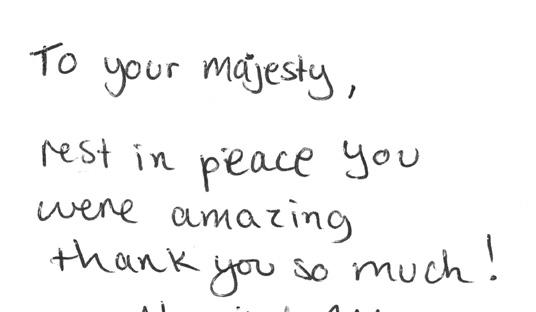 To your majesty,
rest in peace you
were amazing
thank you so much!